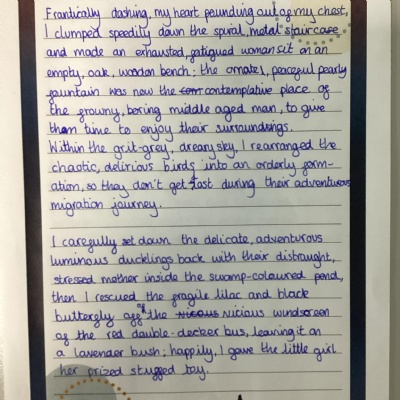 Frantically dashing, my heart pounding out of my chest,
I clumped speedily down the spiral, metal staircase
and made an exhausted, fatigued woman sit on an
empty, oak, wooden bench; the ornate, peaceful pearly
fountain was now the contemplative place of
the frowny, boring middle aged man, to give
them time to enjoy their surroundings.
Within the grit-grey, dreary sky, I rearranged the
chaotic, delirious birds into an orderly form-
ation, so they don't get lost during their adventurous
migration journey.
I carefully set down the delicate, adventurous
luminous ducklings back with their distraught,
stressed mother inside the swamp-coloured pond,
then I rescued the fragile lilac and black
butterfly off the vicious windscreen
of the red double-decker bus, leaving it on
a lavender bush; happily, I gave the little girl
her prized stuffed toy.